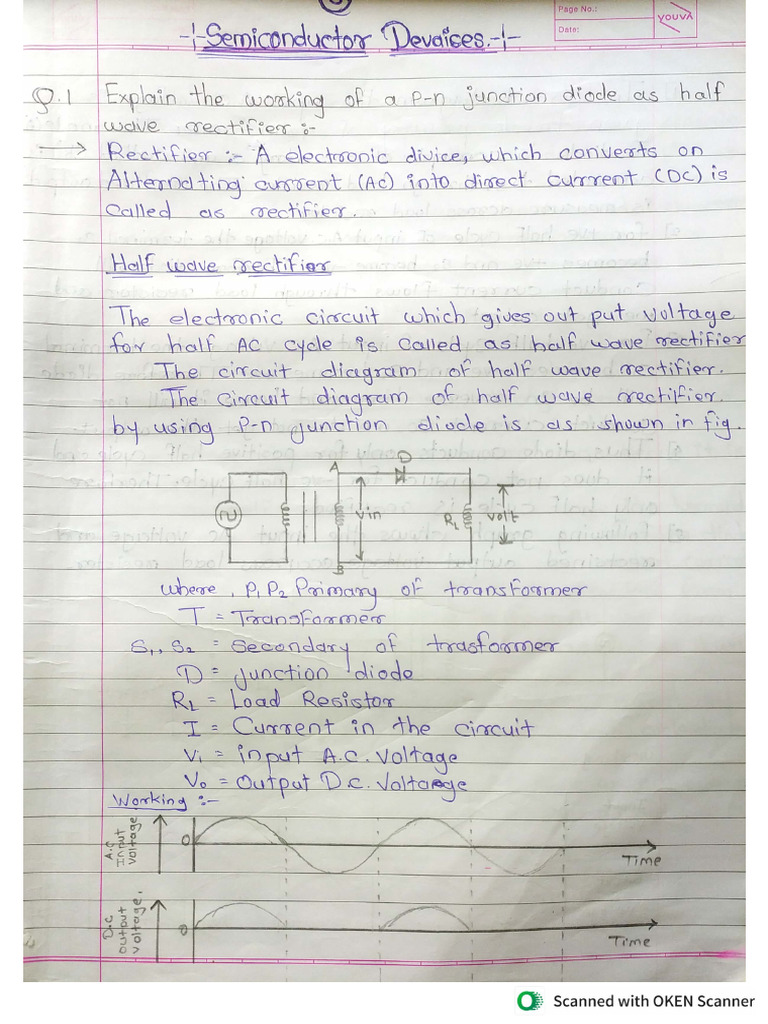 Page No.:
Date:
YOUVA
-¦-Semiconductor Devaices.-¦-
Q.1 Explain the working of a P-n junction diode as half
wave rectifier :-
→ Rectifier :- A electronic divice, which converts on
Alternating current (AC) into direct current (DC) is
Called as rectifier.
Half wave rectifier
The electronic circuit which gives out put voltage
for half AC cycle is called as half wave rectifier
The circuit diagram of half wave rectifier.
The circuit diagram of half wave rectifier.
by using P-n junction diode is as shown in fig.
A
D
Vin
RL
Volt
B
where, P1 P2 Primary of transformer
T = Transformer
S1, S2 = Secondary of trasformer
D = junction diode
RL = Load Resistor
I = Current in the circuit
Vi = input A.C. Voltage
Vo = Output D.C. Voltage
Working :-
A.C
Input
Voltage
0
Time
D.C
output
voltage.
0
Time
Scanned with OKEN Scanner